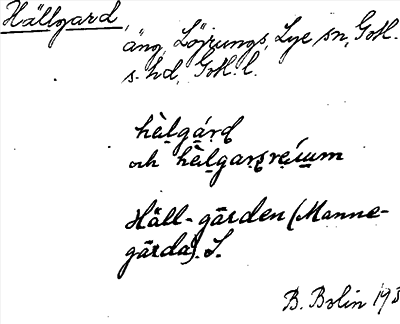 Hällgard,
äng, Löjrungs, Lye sn, Gotl.
s. hd, Gotl. l.
hèlgárd
och hèlgarsreíum
Häll-gärden (Manne-
gärda). L.
B. Bolin 193